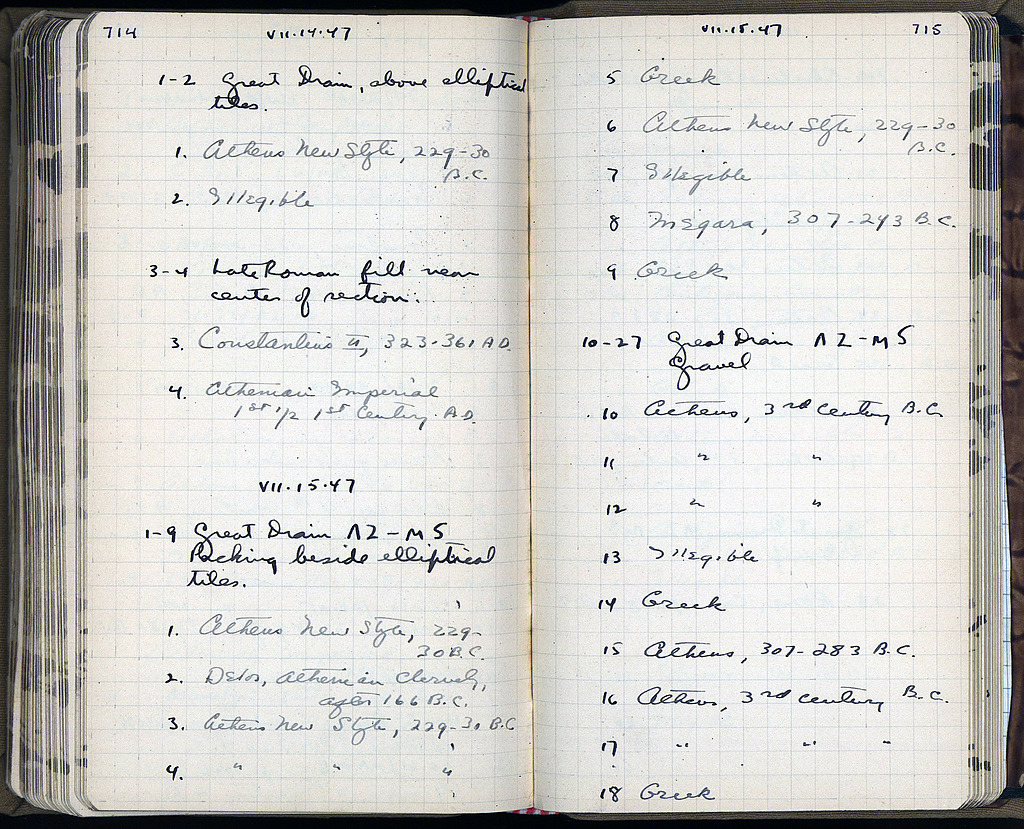 714
VII.14.47
1-2 Great Drain, above elliptical
tiles.
1. Athens New Style, 229-30
B.C.
2. Illegible
3-4 Late Roman fill near
center of section.
3. Constantius II, 323-361 A.D.
4. Athenian Imperial
1st 1/2 1st Century A.D.
VII.15.47
1-9 Great Drain ΛΖ-ΜS
Packing beside elliptical
tiles.
1. Athens New Style, 229-
30 B.C.
2. Delos, Athenian Cleruchy,
after 166 B.C.
3. Athens New Style, 229-30 B.C
4. " " "
VII.15.47
715
5 Greek
6 Athens New Style, 229-30
B.C.
7 Illegible
8 Megara, 307-243 B.C.
9 Greek
10-27 Great Drain ΛΖ-ΜS
Gravel
10 Athens, 3rd century B.C.
11 " "
12 " "
13 Illegible
14 Greek
15 Athens, 307-283 B.C.
16 Athens, 3rd century B.C.
17 " " "
18 Greek